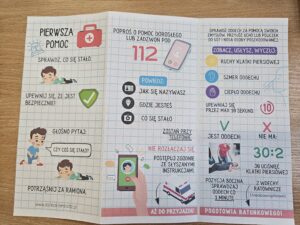 PIERWSZA
POMOC
SPRAWDŹ, CO SIĘ STAŁO
UPEWNIJ SIĘ, ŻE JEST
BEZPIECZNIE!
GŁOŚNO PYTAJ:
CZY COŚ SIĘ STAŁO?
POTRZĄŚNIJ ZA RAMIONA
POPROŚ O POMOC DOROSŁEGO
LUB ZADZWOŃ POD
112
POWIEDZ:
JAK SIĘ NAZYWASZ
GDZIE JESTEŚ
CO SIĘ STAŁO
ZOSTAŃ PRZY
TELEFONIE!
NIE ROZŁĄCZAJ SIĘ
POSTĘPUJ ZGODNIE
ZE SŁYSZANYMI
INSTRUKCJAMI
AŻ DO PRZYJAZDU
SPRAWDŹ ODDECH ZA POMOCĄ SWOICH
ZOBACZ, USŁYSZ, WYCZUJ:
RUCHY KLATKI PIERSIOWEJ
SZMER ODDECHU
CIEPŁO ODDECHU
UPEWNIJ SIĘ
PRZEZ MAX 10 SEKUND
10
JEST ODDECH:
NIE MA:
30:2
30 UCIŚNIĘĆ
KLATKI PIERSIOWEJ
2 WDECHY
RATOWNICZE
POZYCJA BOCZNA
SPRAWDZAJ ODDECH
CO 1 MINUTĘ
POGOTOWIA RATUNKOWEGO!